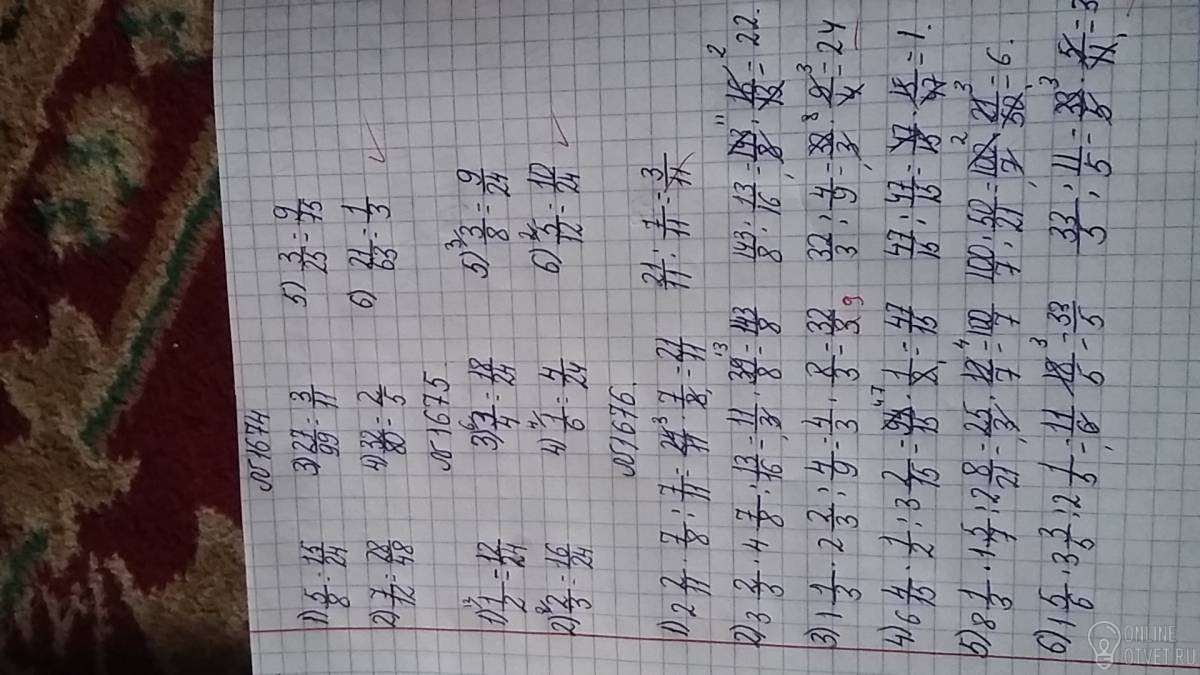 №1674
1) 5/8 = 15/24 3) 27/99 = 3/11 5) 3/25 = 9/75
2) 7/12 = 28/48 4) 32/80 = 2/5 6) 21/63 = 1/3
№1675
1) 1/2 = 12/24 3) 3/4 = 18/24 5) 3/8 = 9/24
2) 2/3 = 16/24 4) 1/6 = 4/24 6) 5/12 = 10/24
№1676.
1) 2 2/11 · 7/8 : 7/11 = 24/11 · 7/8 = 21/11 21/11 : 7/11 = 3/11
2) 3 2/3 · 4 7/8 : 13/16 = 11/3 · 39/8 = 143/8 143/8 : 13/16 = 143/8 · 16/13 = 22.
3) 1 1/3 · 2 2/3 : 4/9 = 4/3 · 8/3 = 32/3 9 32/3 : 4/9 = 32/3 · 9/4 = 24
4) 6 4/15 · 1/2 : 3 2/15 = 94/15 · 1/2 = 47/15 47/15 : 47/15 = 47/15 · 15/47 = 1.
5) 8 1/3 · 1 5/7 : 2 8/21 = 25/3 · 12/7 = 100/7 100/7 : 50/21 = 100/7 · 21/50 = 6.
6) 1 5/6 · 3 3/5 : 2 1/5 = 11/6 · 18/5 = 33/5 33/5 : 11/5 = 33/5 · 5/11 = 3
ONLINE
OTVET.RU